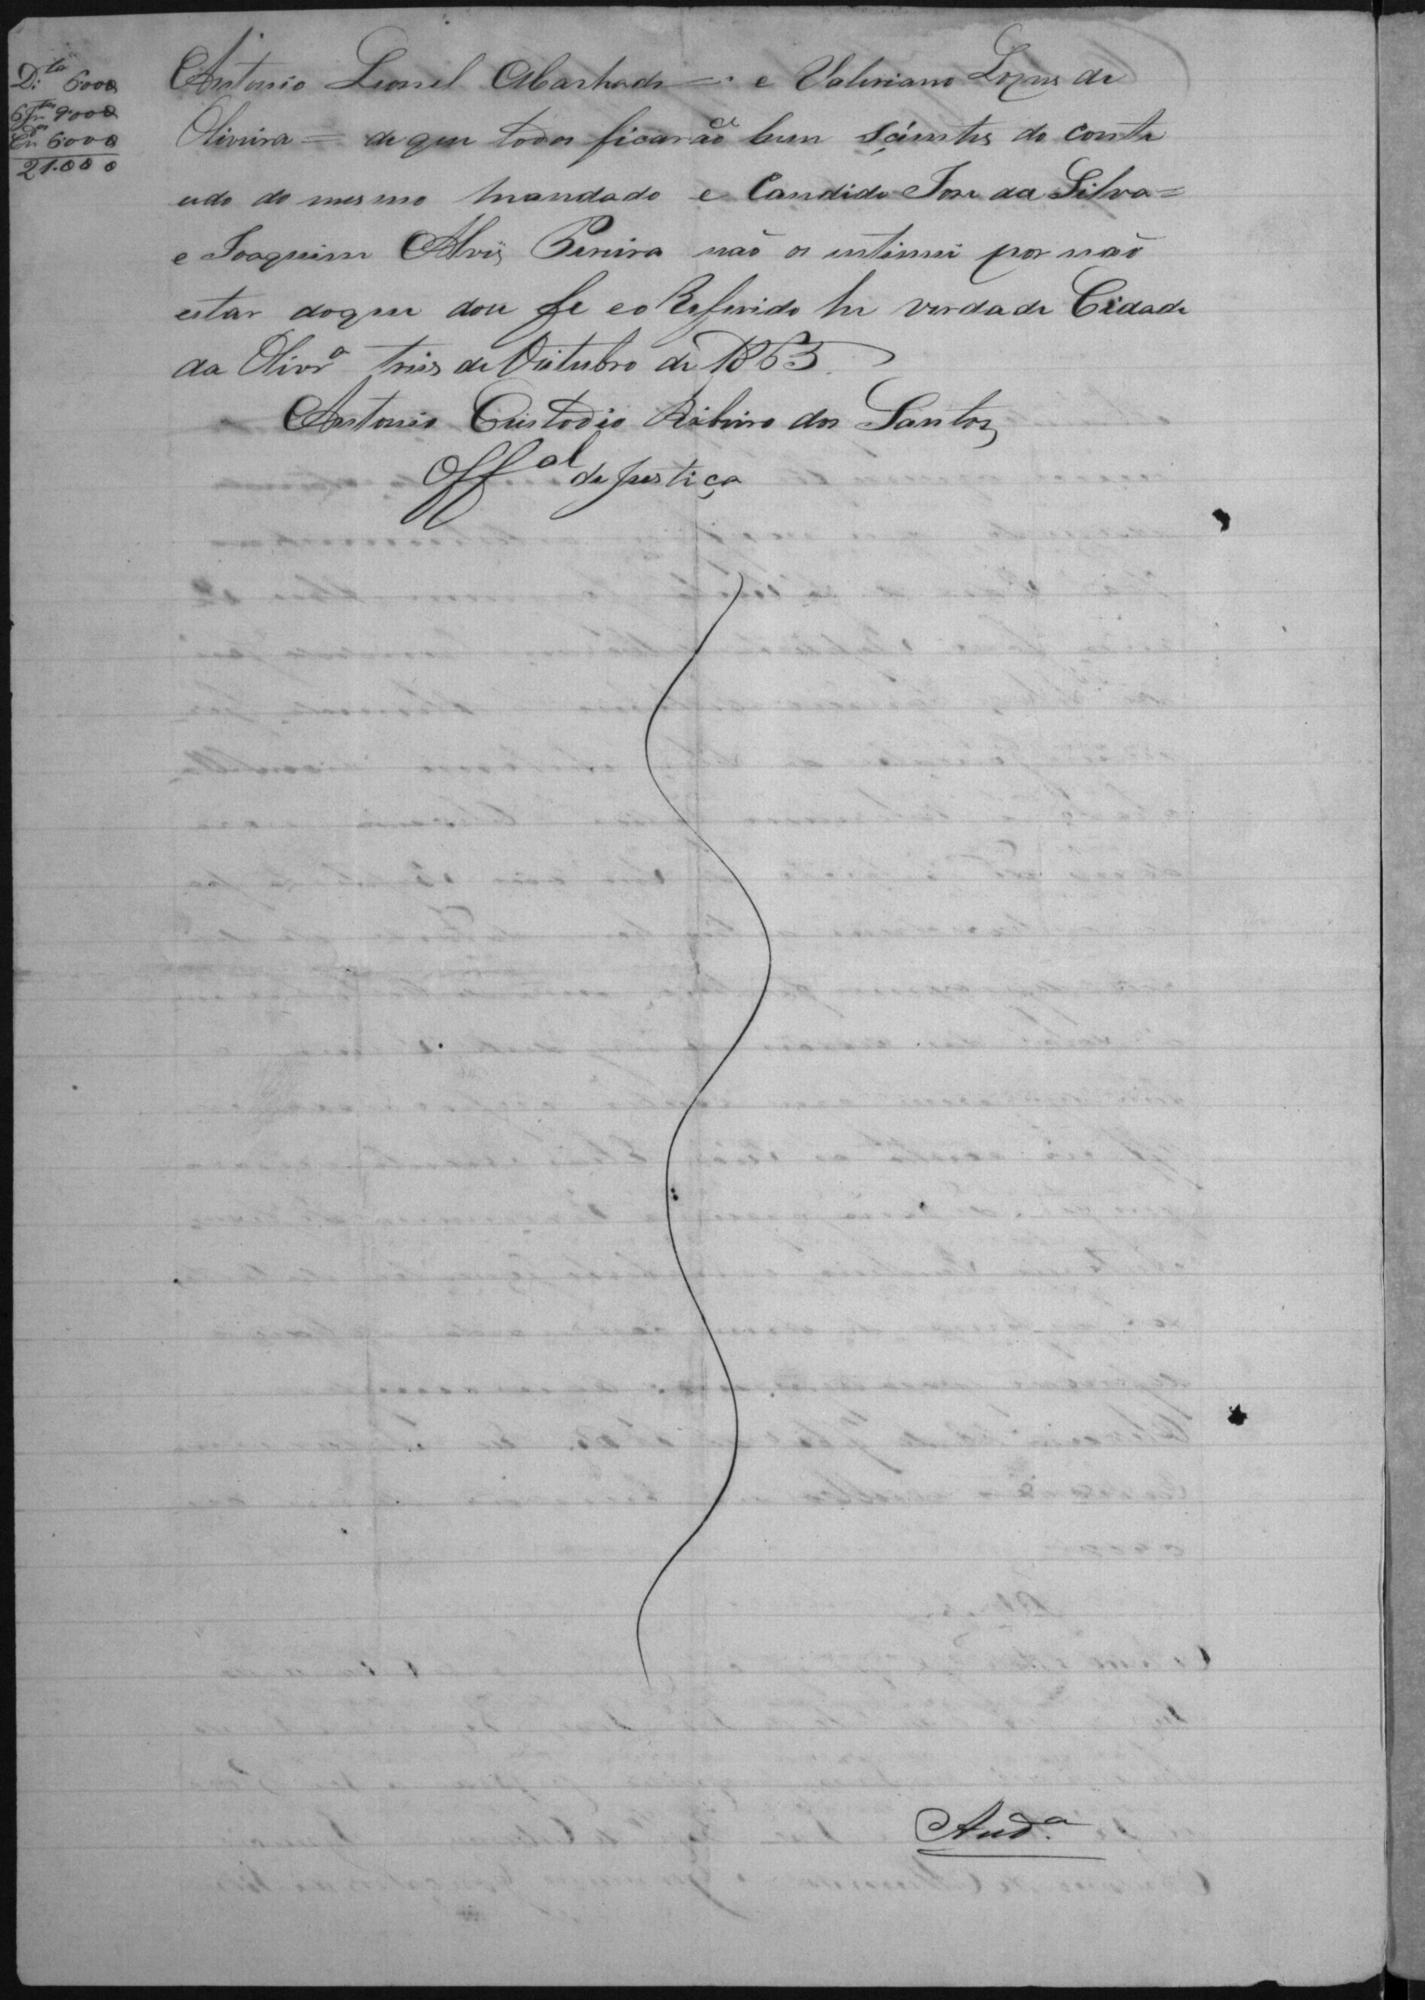 Dita 6000
6 Ins 9000
Con 6000
21.000
Antonio Leonel Machado = e Valeriano Lopes de
Oliveira = de que todos ficarão bem sçientes do conte
udo do mesmo mandado e Candido Jose da Silva =
e Joaquim Alvis Pereira não os intimei por não
estar doque dou fe e o Referido he verdade Cidade
da Olivra tres de Outubro de 1863.
Antonio Custodio Ribeiro dos Santos
Offal de Justiça
Auda.